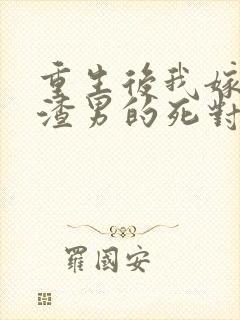 重生後我嫁
渣男的死對
羅國安